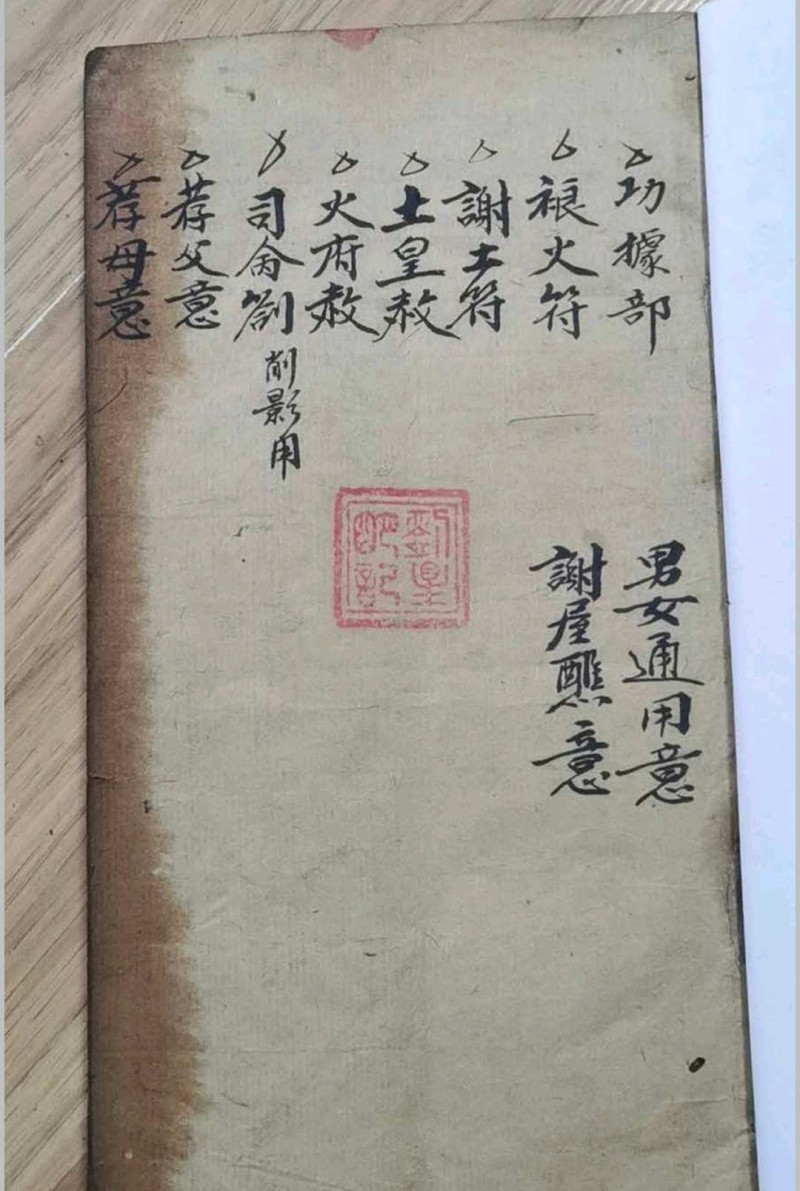 功據部
禳火符
謝土符
土皇赦
火府赦
司命劄 削影用
荐父意
荐母意
男女通用意
謝屋醮意